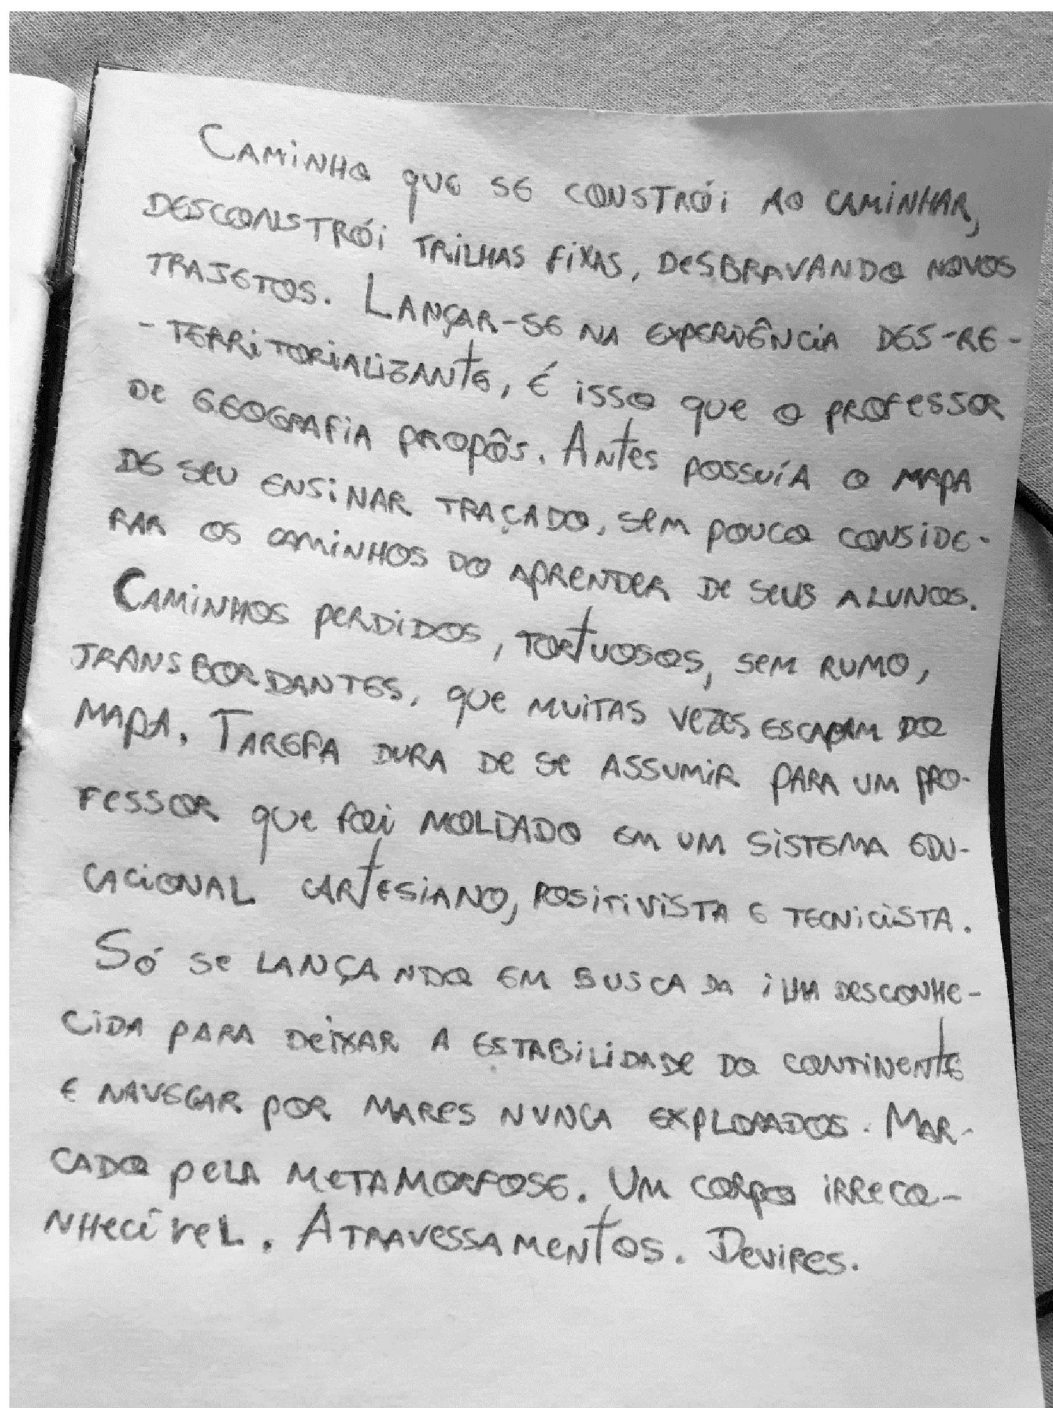 Caminho que se constrói ao caminhar,
desconstrói trilhas fixas, desbravando novos
trajetos. Lançar-se na experiência des-re-
-territorializante, é isso que o professor
de geografia propôs. Antes possuía o mapa
de seu ensinar traçado, sem pouco conside-
rar os caminhos do aprender de seus alunos.
Caminhos perdidos, tortuosos, sem rumo,
transbordantes, que muitas vezes escapam do
mapa. Tarefa dura de se assumir para um pro-
fessor que foi moldado em um sistema edu-
cacional cartesiano, positivista e tecnicista.
Só se lançando em busca da ilha desconhe-
cida para deixar a estabilidade do continente
e navegar por mares nunca explorados. Mar-
cado pela metamorfose. Um corpo irreco-
nhecível. Atravessamentos. Devires.